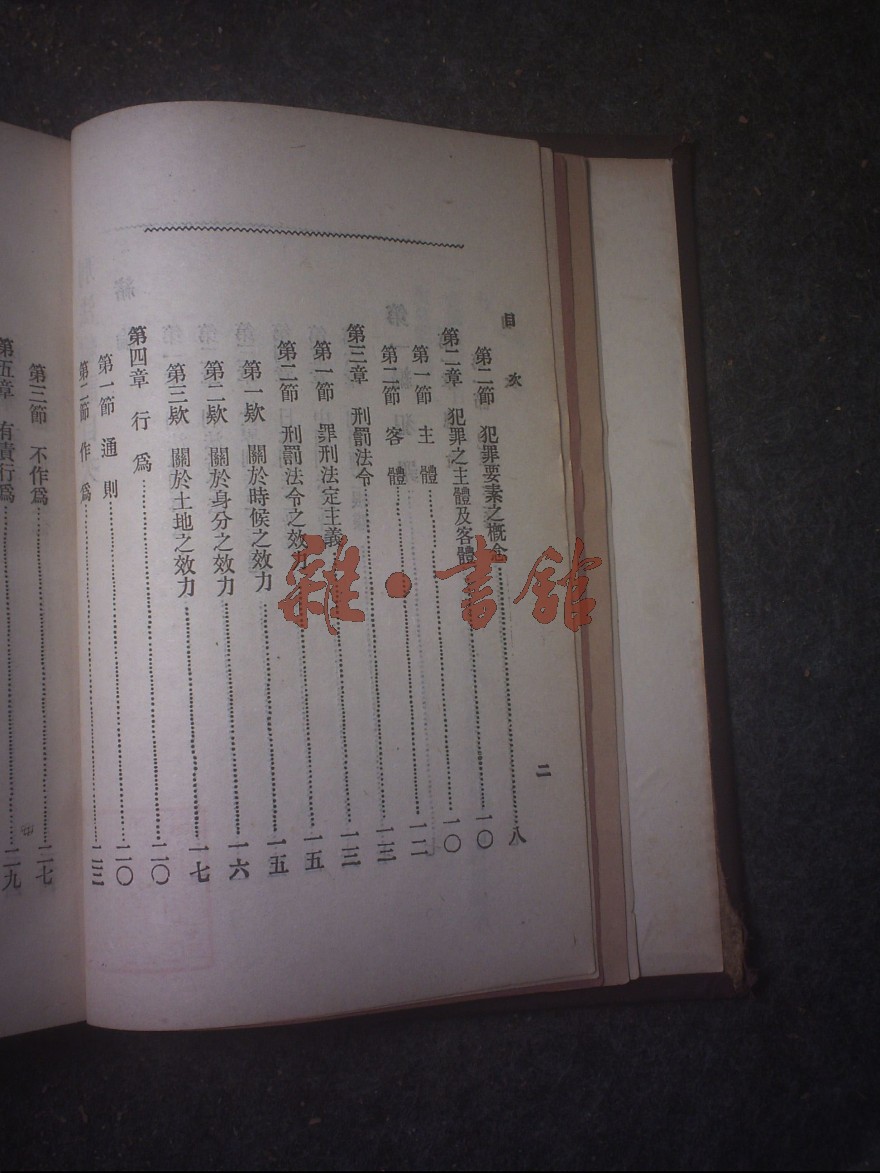 目次
二
第二節 犯罪要素之概念……八
第二章 犯罪之主體及客體……一〇
第一節 主體……一〇
第二節 客體……一二
第三章 刑罰法令……一三
第一節 罪刑法定主義……一三
第二節 刑罰法令之效力……一五
第一欵 關於時候之效力……一五
第二欵 關於身分之效力……一六
第三欵 關於土地之效力……一七
第四章 行爲……二〇
第一節 通則……二〇
第二節 作爲……二三
第三節 不作爲……二七
第五章 有責行爲……二九
雜·書館